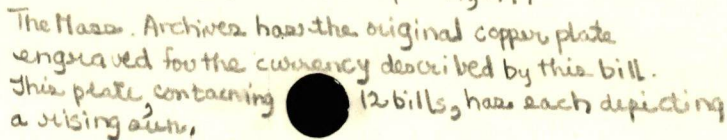 The Mass. Archives has the original copper plate
engraved for the currency described by this bill.
This plate, containing 12 bills, has each depicting
a rising sun.